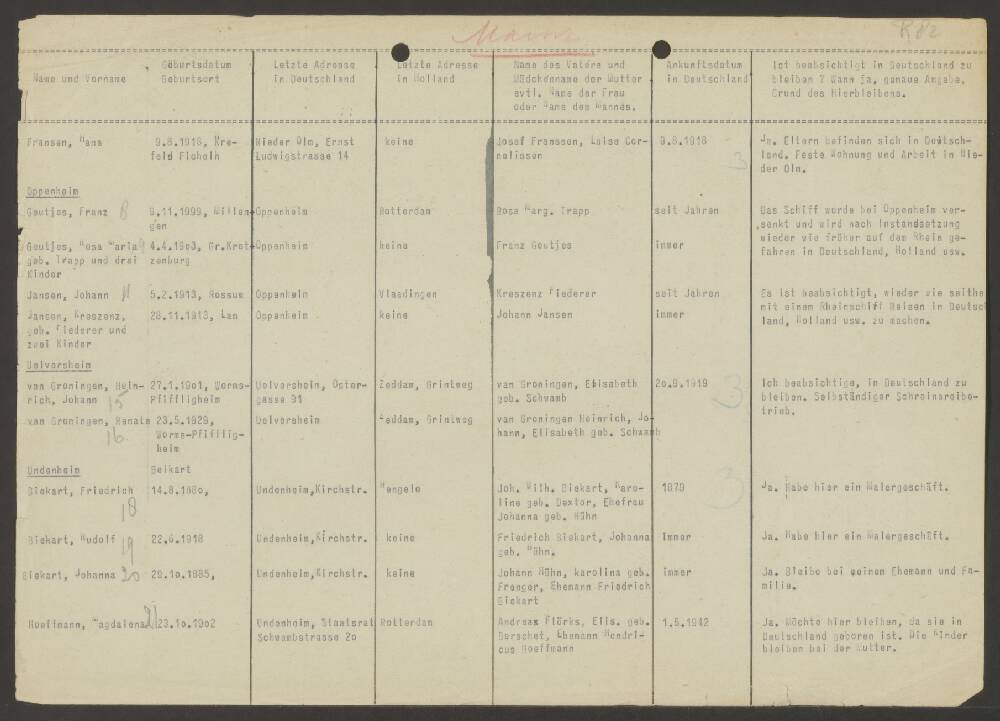 Mainz
R 82
Name und Vorname
Geburtsdatum
Geburtsort
Letzte Adresse
in Deutschland
Letzte Adresse
in Holland
Name des Vaters und
Mädchenname der Mutter
evtl. Name der Frau
oder Name des Mannes.
Ankunftsdatum
in Deutschland
Ist beabsichtigt in Deutschland zu
bleiben ? Wann ja, genaue Angabe.
Grund des Hierbleibens.
Franssen, Hans
9.8.1918, Kre-
feld Fichelh
Nieder Olm, Ernst
Ludwigstrasse 14
keine
Josef Franssen, Luise Cor-
nelissen
9.8.1918
3
Ja. Eltern befinden sich in Deutsch-
land. Feste Wohnung und Arbeit in Nie-
der Olm.
Oppenheim
Geutjes, Franz 8
9.11.1899, Millen-
gen
Oppenheim
Rotterdam
Rosa Marg. Trapp
seit Jahren
Das Schiff wurde bei Oppenheim ver-
senkt und wird nach Instandsetzung
wieder wie früher auf dem Rhein ge-
fahren in Deutschland, Holland usw.
Geutjes, Rosa Maria 9
geb. Trapp und drei
Kinder
4.4.1903, Gr.Krot-
zenburg
Oppenheim
keine
Franz Geutjes
immer
Jansen, Johann 11
5.2.1913, Rossum
Oppenheim
Vlaadingen
Kreszenz Fiederer
seit Jahren
Es ist beabsichtigt, wieder wie seithe
mit einem Rheinschiff Reisen in Deutsc
land, Holland usw. zu machen.
Jansen, Kreszenz,
geb. Fiederer und
zwei Kinder
28.11.1913, Lan
Oppenheim
keine
Johann Jansen
immer
Uelversheim
van Groningen, Hein-
rich, Johann 15
27.1.1901, Worms-
Pfiffligheim
Uelversheim, Oster-
gasse 91
Zeddam, Grintweg
van Groningen, Elisabeth
geb. Schwamb
20.9.1919
3
Ich beabsichtige, in Deutschland zu
bleiben. Selbständiger Schreinereibe-
trieb.
van Groningen, Renate
16
23.5.1929,
Worms-Pfifflig-
heim
Uelversheim
Zeddam, Grintweg
van Groningen Heinrich, Jo-
hann, Elisabeth geb. Schwamb
Undenheim
Beikart
Biekart, Friedrich
18
14.8.1880,
Undenheim,Kirchstr.
Hengelo
Joh. Wilh. Biekart, Karo-
line geb. Dexter, Ehefrau
Johanna geb. Hühn
1879
3
Ja. Habe hier ein Malergeschäft.
Biekart, Rudolf 19
22.6.1918
Undenheim,Kirchstr.
keine
Friedrich Biekart, Johanna
geb. Hühn.
immer
Ja. Habe hier ein Malergeschäft.
Biekart, Johanna 20
29.10.1885,
Undenheim,Kirchstr.
keine
Johann Hühn, karolina geb.
Frenger, Ehemann Friedrich
Biekart
immer
Ja. Bleibe bei meinem Ehemann und Fa-
milie.
Hoeffmann, Magdalena 21
23.10.1902
Undenheim, Staatsrat
Schwambstrasse 20
Rotterdam
Andreas Flörks, Elis. geb.
Darschet, Ehemann Hendri-
cus Hoeffmann
1.5.1942
Ja. Möchte hier bleiben, da sie in
Deutschland geboren ist. Die Kinder
bleiben bei der Mutter.